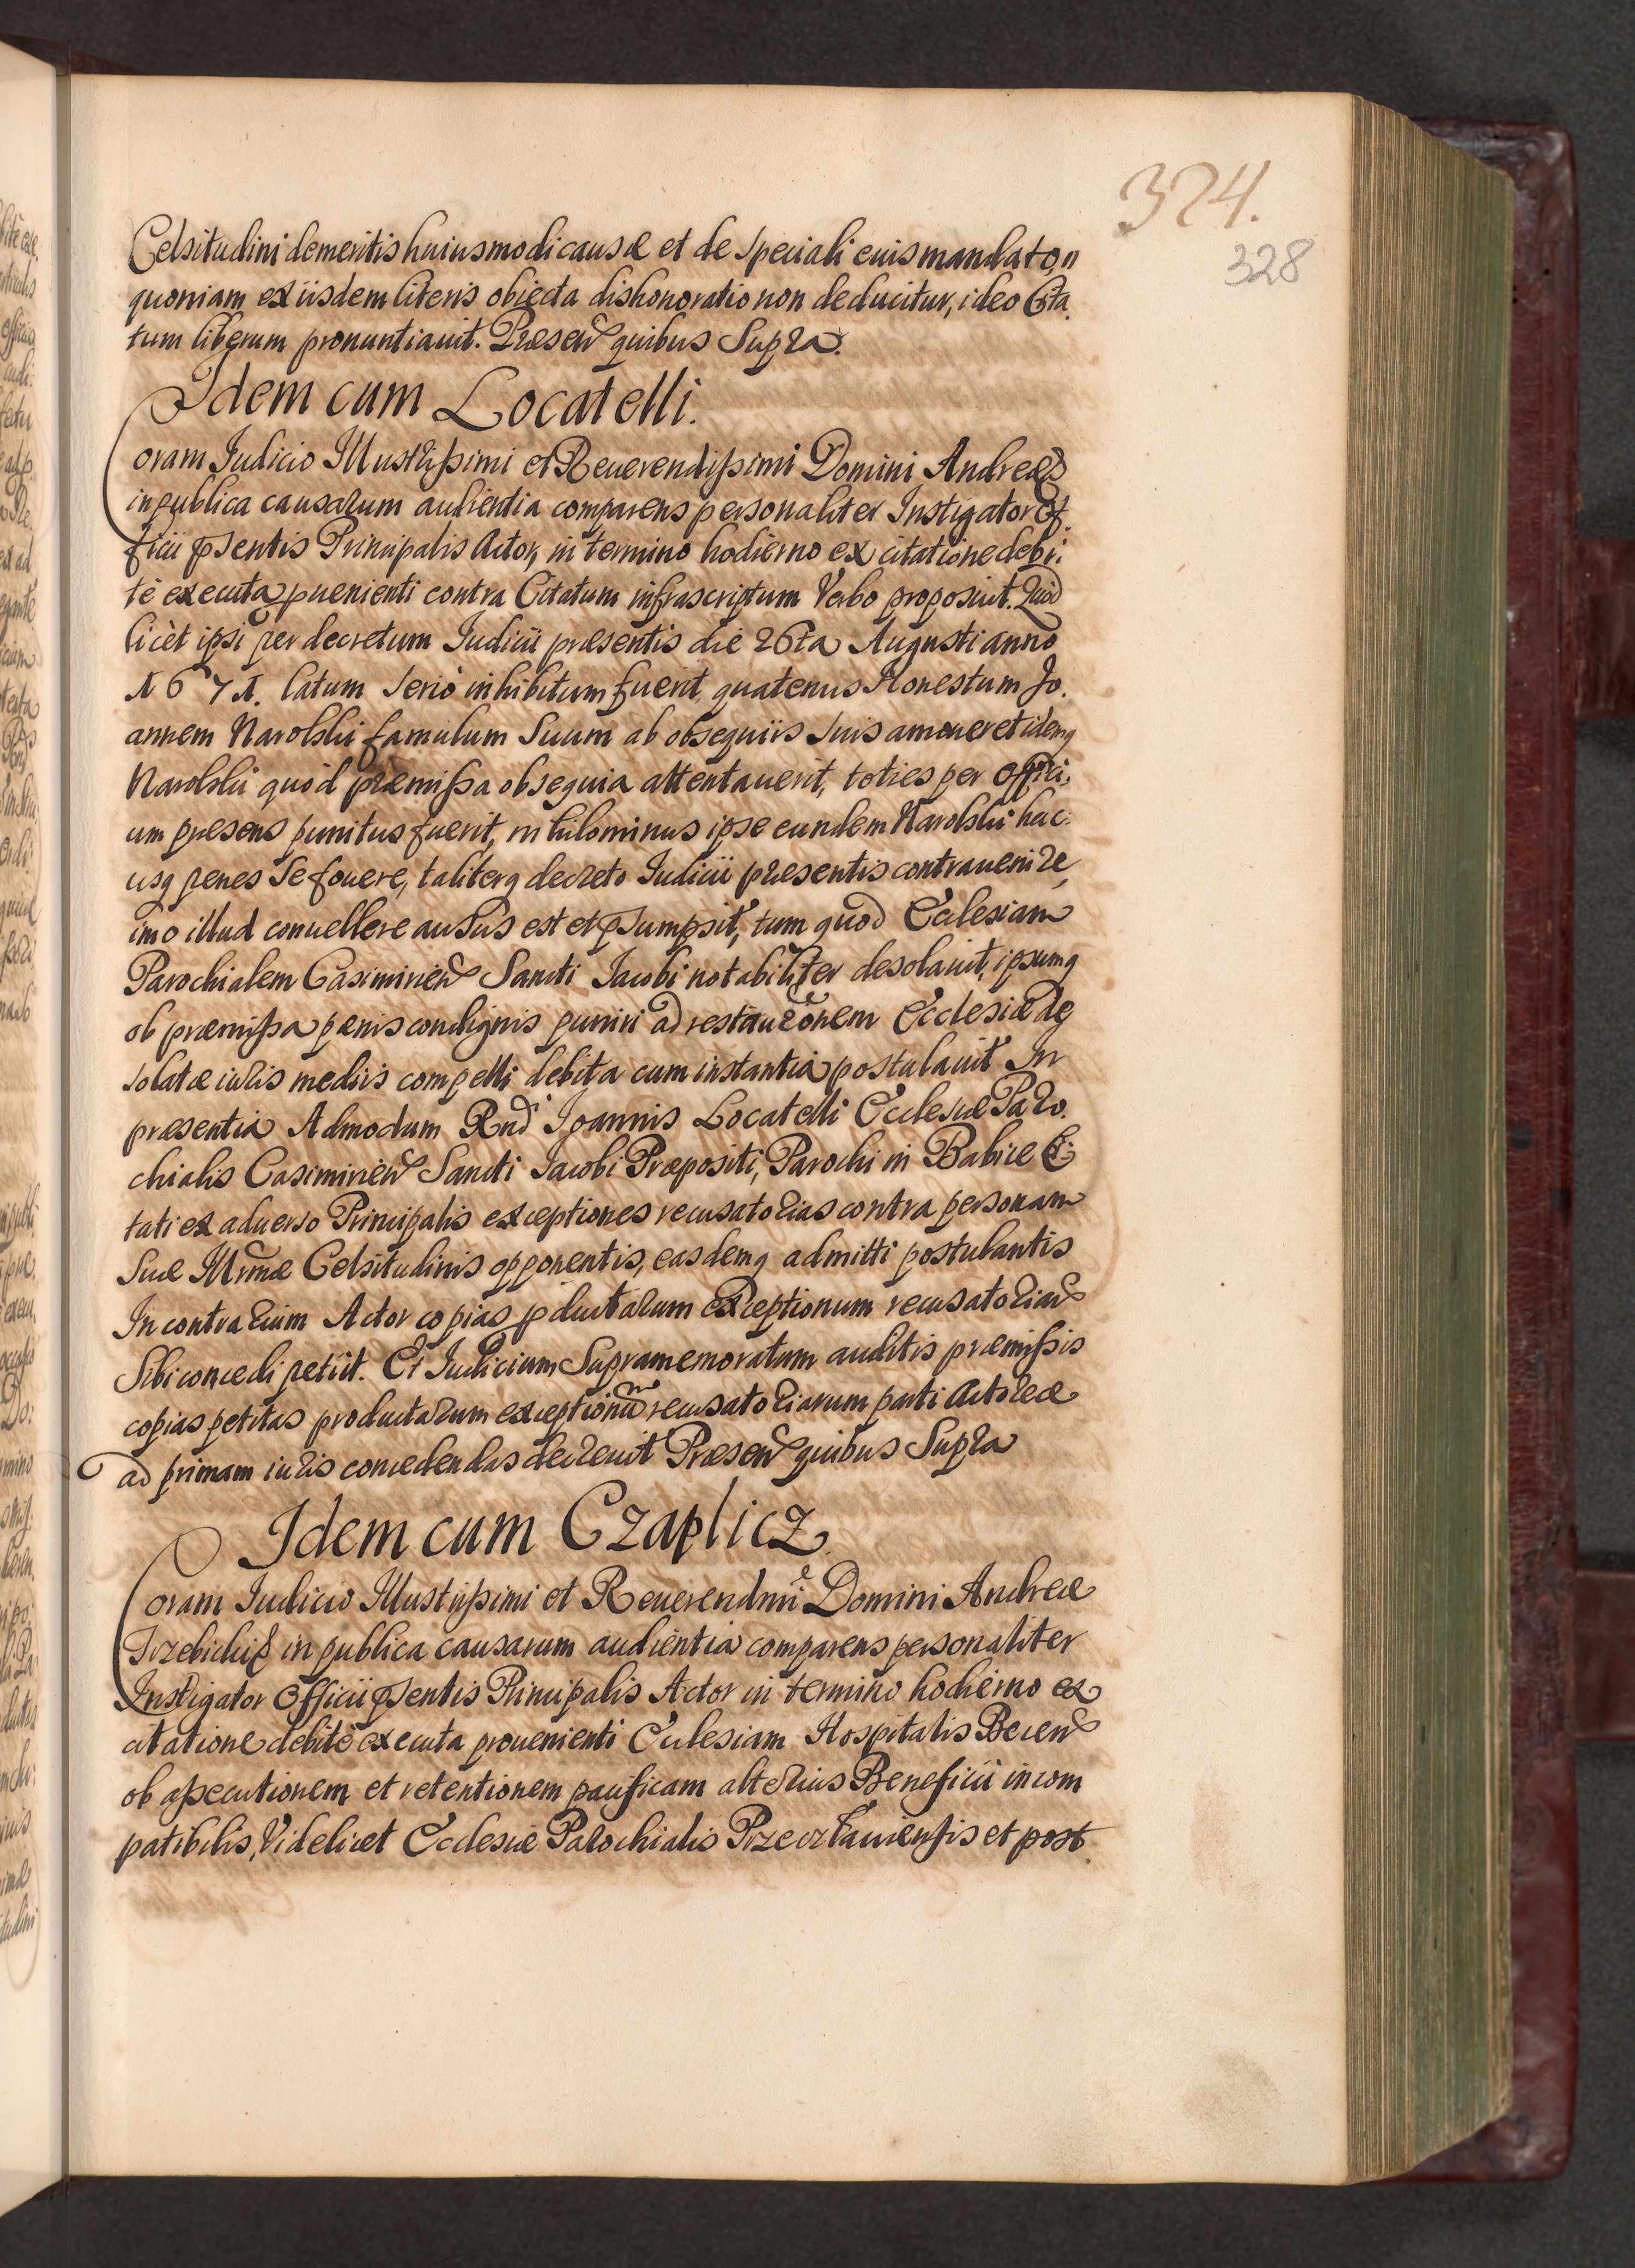 324.
328
Celsitudini de meritis huiusmodi causæ et de speciali euis mandato,
quoniam ex iisdem literis obiecta dishonoratio non deducitur, ideo Cita
tum liberum pronuntiauit. Præsen quibus Supra.
Idem cum Locatelli.
Coram Iudicio Illustrißimi et Reuerendißimi Domini Andreæ
in publica causarum audientia comparens personaliter Instigator Of
ficii psentis Principalis Actor, in termino hodierno ex citatione debi:
tè executa puenienti contra Citatum infrascriptum Verbo proposuit. Quod
licèt ipsi per decretum Iudicii præsentis die 26ta Augusti anno
1671. latum seriò inhibitum fuerit, quatenus Honestum Jo.
annem Narolski famulum Suum ab obsequiis suis amoueret idemq
Narolski quòd præmißa obsequia attentauerit, toties per offici:
um præsens punitus fuerit, nihilominus ipse eundem Narolski huc:
usq penes Se fouere, taliterq decreto Iudicii præsentis contrauenire,
imo illud conuellere ausus est et psumpsit, tum quod Ecclesiam
Parochialem Casimirien Sancti Iacobi notabiliter desolauit, ipsumq
ob præmißa pænis condignis puniri ad restauraonem Ecclesiæ de
solatæ iuris mediis compelli debita cum instantia postulauit In
præsentia Admodum Rndi Ioannis Locatelli Ecclesiæ Paro.
chialis Casimirien Sancti Iacobi Præpositi, Parochi in Babice Ci
tati ex aduerso Principalis exceptiones recusatorias contra personam
Suæ Illrmæ Celsitudinis opponentis, easdemq admitti postulantis
In contrarium Actor copias pductarum exceptionum recusatoriar
Sibi concedi petiit. Et Iudicium Supramemoratum auditis præmißis
copias petitas productarum exceptionū recusatoriarum parti Actoreæ
ad primam iuris concedendas decreuit Præsen quibus Supra
Idem cum Czaplicz
Coram Iudicio Illustrißimi et Reuerendmi Domini Andreæ
Trzebicki in publica causarum audientia comparens personaliter
Instigator Officii psentis Principalis Actor in termino hodierno ex
citatione debitè executa prouenienti Ecclesiam Hospitalis Becen
ob aßecutionem et retentionem pacificam alterius Beneficii incom
patibilis, Videlicet Ecclesiæ Parochialis Przecztauiensis et post